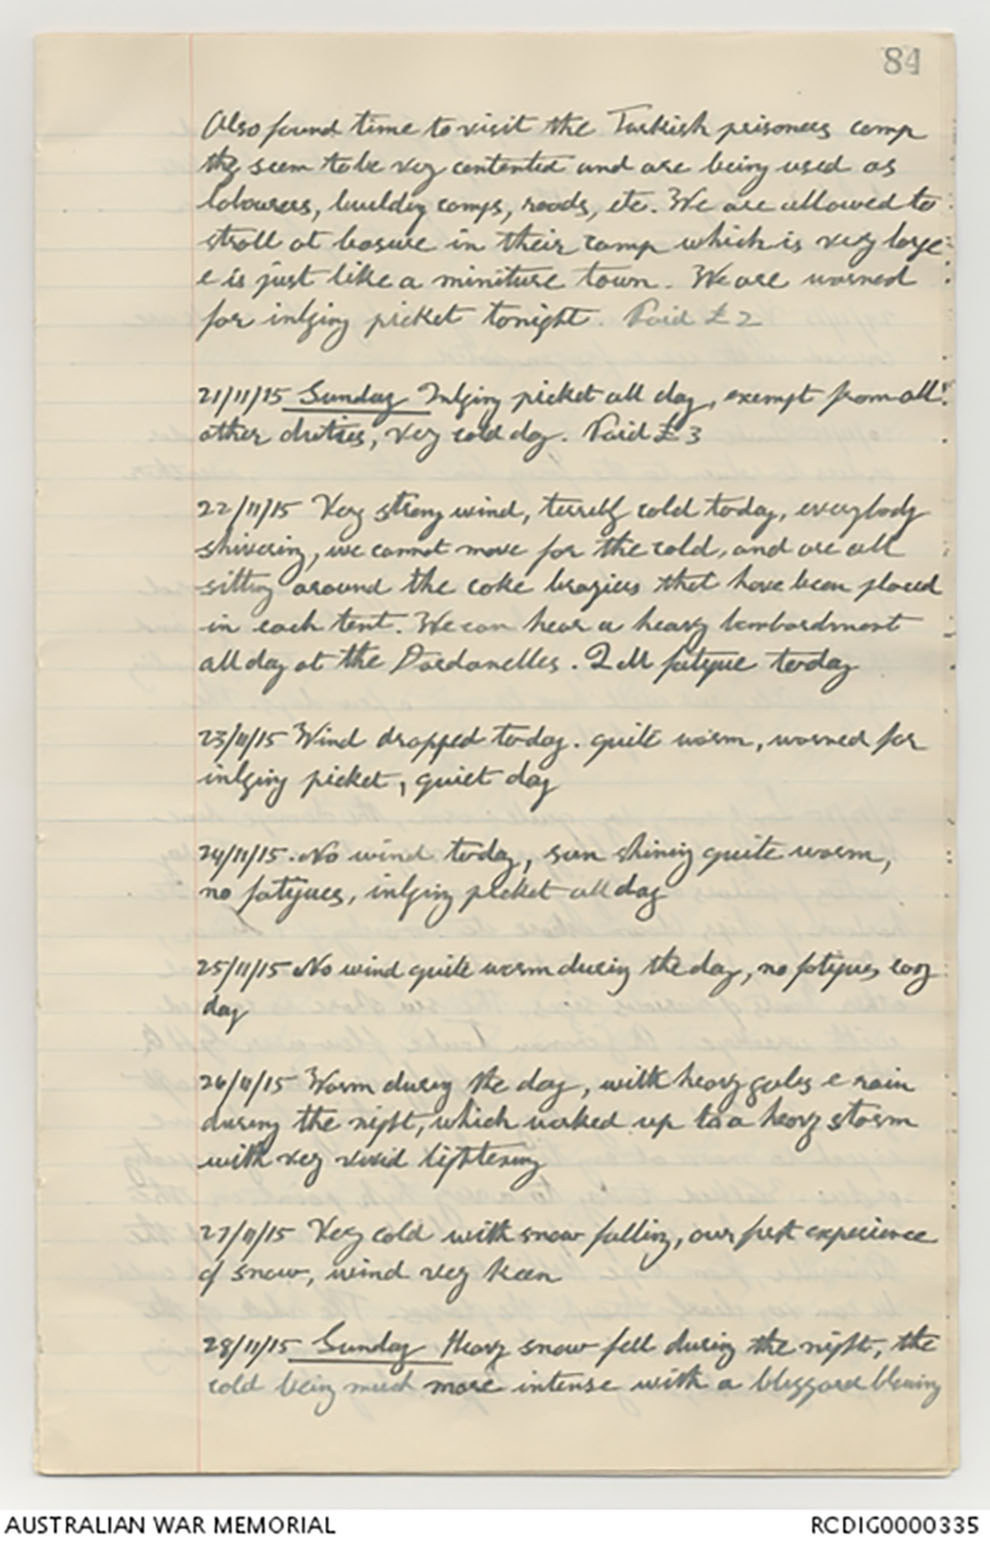 84
Also found time to visit the Turkish prisoners camp
they seem to be very contented and are being used as
labourers, building camps, roads, etc. We are allowed to
stroll at leasure in their camp which is very large
& is just like a miniture town. We are warned
for inlying picket tonight. Paid £2
21/11/15 Sunday Inlying picket all day, exempt from all
other duties, very cold day. Paid £3
22/11/15 Very strong wind, terribly cold today, everybody
shivering, we cannot move for the cold, and are all
sitting around the coke braziers that have been placed
in each tent. We can hear a heavy bombardment
all day at the Dardanelles. Q M fatigue today
23/11/15 Wind dropped today. quite warm, warned for
inlying picket, quiet day
24/11/15. No wind today, sun shining quite warm,
no fatigues, inlying picket all day
25/11/15 No wind quite warm during the day, no fatigues easy
day
26/11/15 Warm during the day, with heavy gales & rain
during the night, which worked up to a heavy storm
with very vivid lightening
27/11/15 Very cold with snow falling, our first experience
of snow, wind very keen
28/11/15 Sunday Heavy snow fell during the night, the
cold being much more intense with a blizzard blowing
AUSTRALIAN WAR MEMORIAL
RCDIG0000335